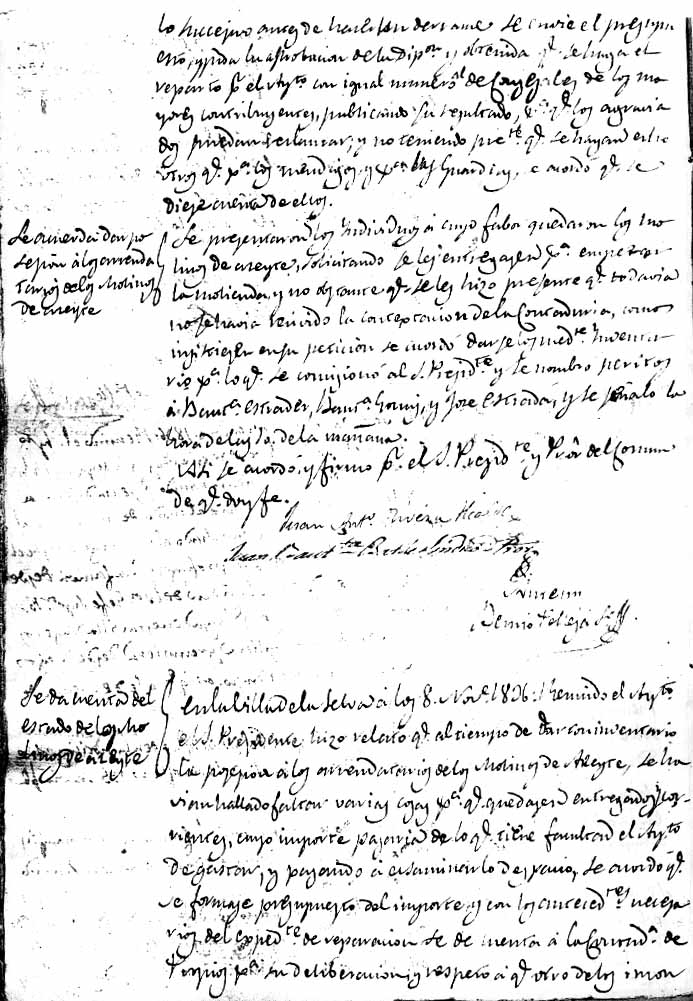 lo succesivo antes de hacerse derrame se envie el presupu
esto, y pida la aprobacion de la Dipon y obtenida qe. se haga el
reparto pr el Aytto con igual numero de Concejales de los ma
yores contribuyentes, publicando su resultado, pa. qe. los agravia
dos puedan reclamar, y no teniendo prete qe. se hayan echo
otros qe. pa. los mendigos, y pa. las Guardias, se acordó qe. se
diese cuenta de ellos.
Se acuerda dar po
sesion á los arrenda
tarios de los Molinos
de Aceyte
Se presentaron los Individuos á cuyo fabor quedaron los mo
linos de aceyte, solicitando se les entregasen pa. empezar
la molienda, y no obstante qe. se les hizo presente qe. todavia
no se havia tenido la conceptacion de la Contaduria, como
insistiesen en su peticion se acordó darselos medte. Inventa
rio pa. lo qe. se comisionó al S. Presidte y se nombro peritos
á Bauta. Estrader, Bauta. y Jose Estradá, y se señaló la
hora de las 10. de la mañana.
Asi se acordó, y firmo pr. el S. Presidte y Pror del Comun
de qe. doy fe.
Juan Anto. Rivera
Juan Baut
Se da cuenta del
estado de los Mo
linos de aceyte
En la Villa de la Selva á los 8. Nove. 1836: Reunido el Aytto.
el S. Presidente hizo relato qe. al tiempo de dar con inventario
la posesion á los arrendatarios de los Molinos de Aceyte, se ha
vian hallado faltar varias cosas pa. qe. quedasen entregados y cor
rientes, cuyo importe pasaria de lo qe. tiene facultad el Aytto
de gastar, y pasando á ecsaminarlo despacio, se acordó qe.
se formase presupuesto del importe y con los antecedtes necesa
rios del expedte de reparacion se de cuenta á la Contada. de
Propios pa. su deliberacion, y respeto á qe. otro de los incon